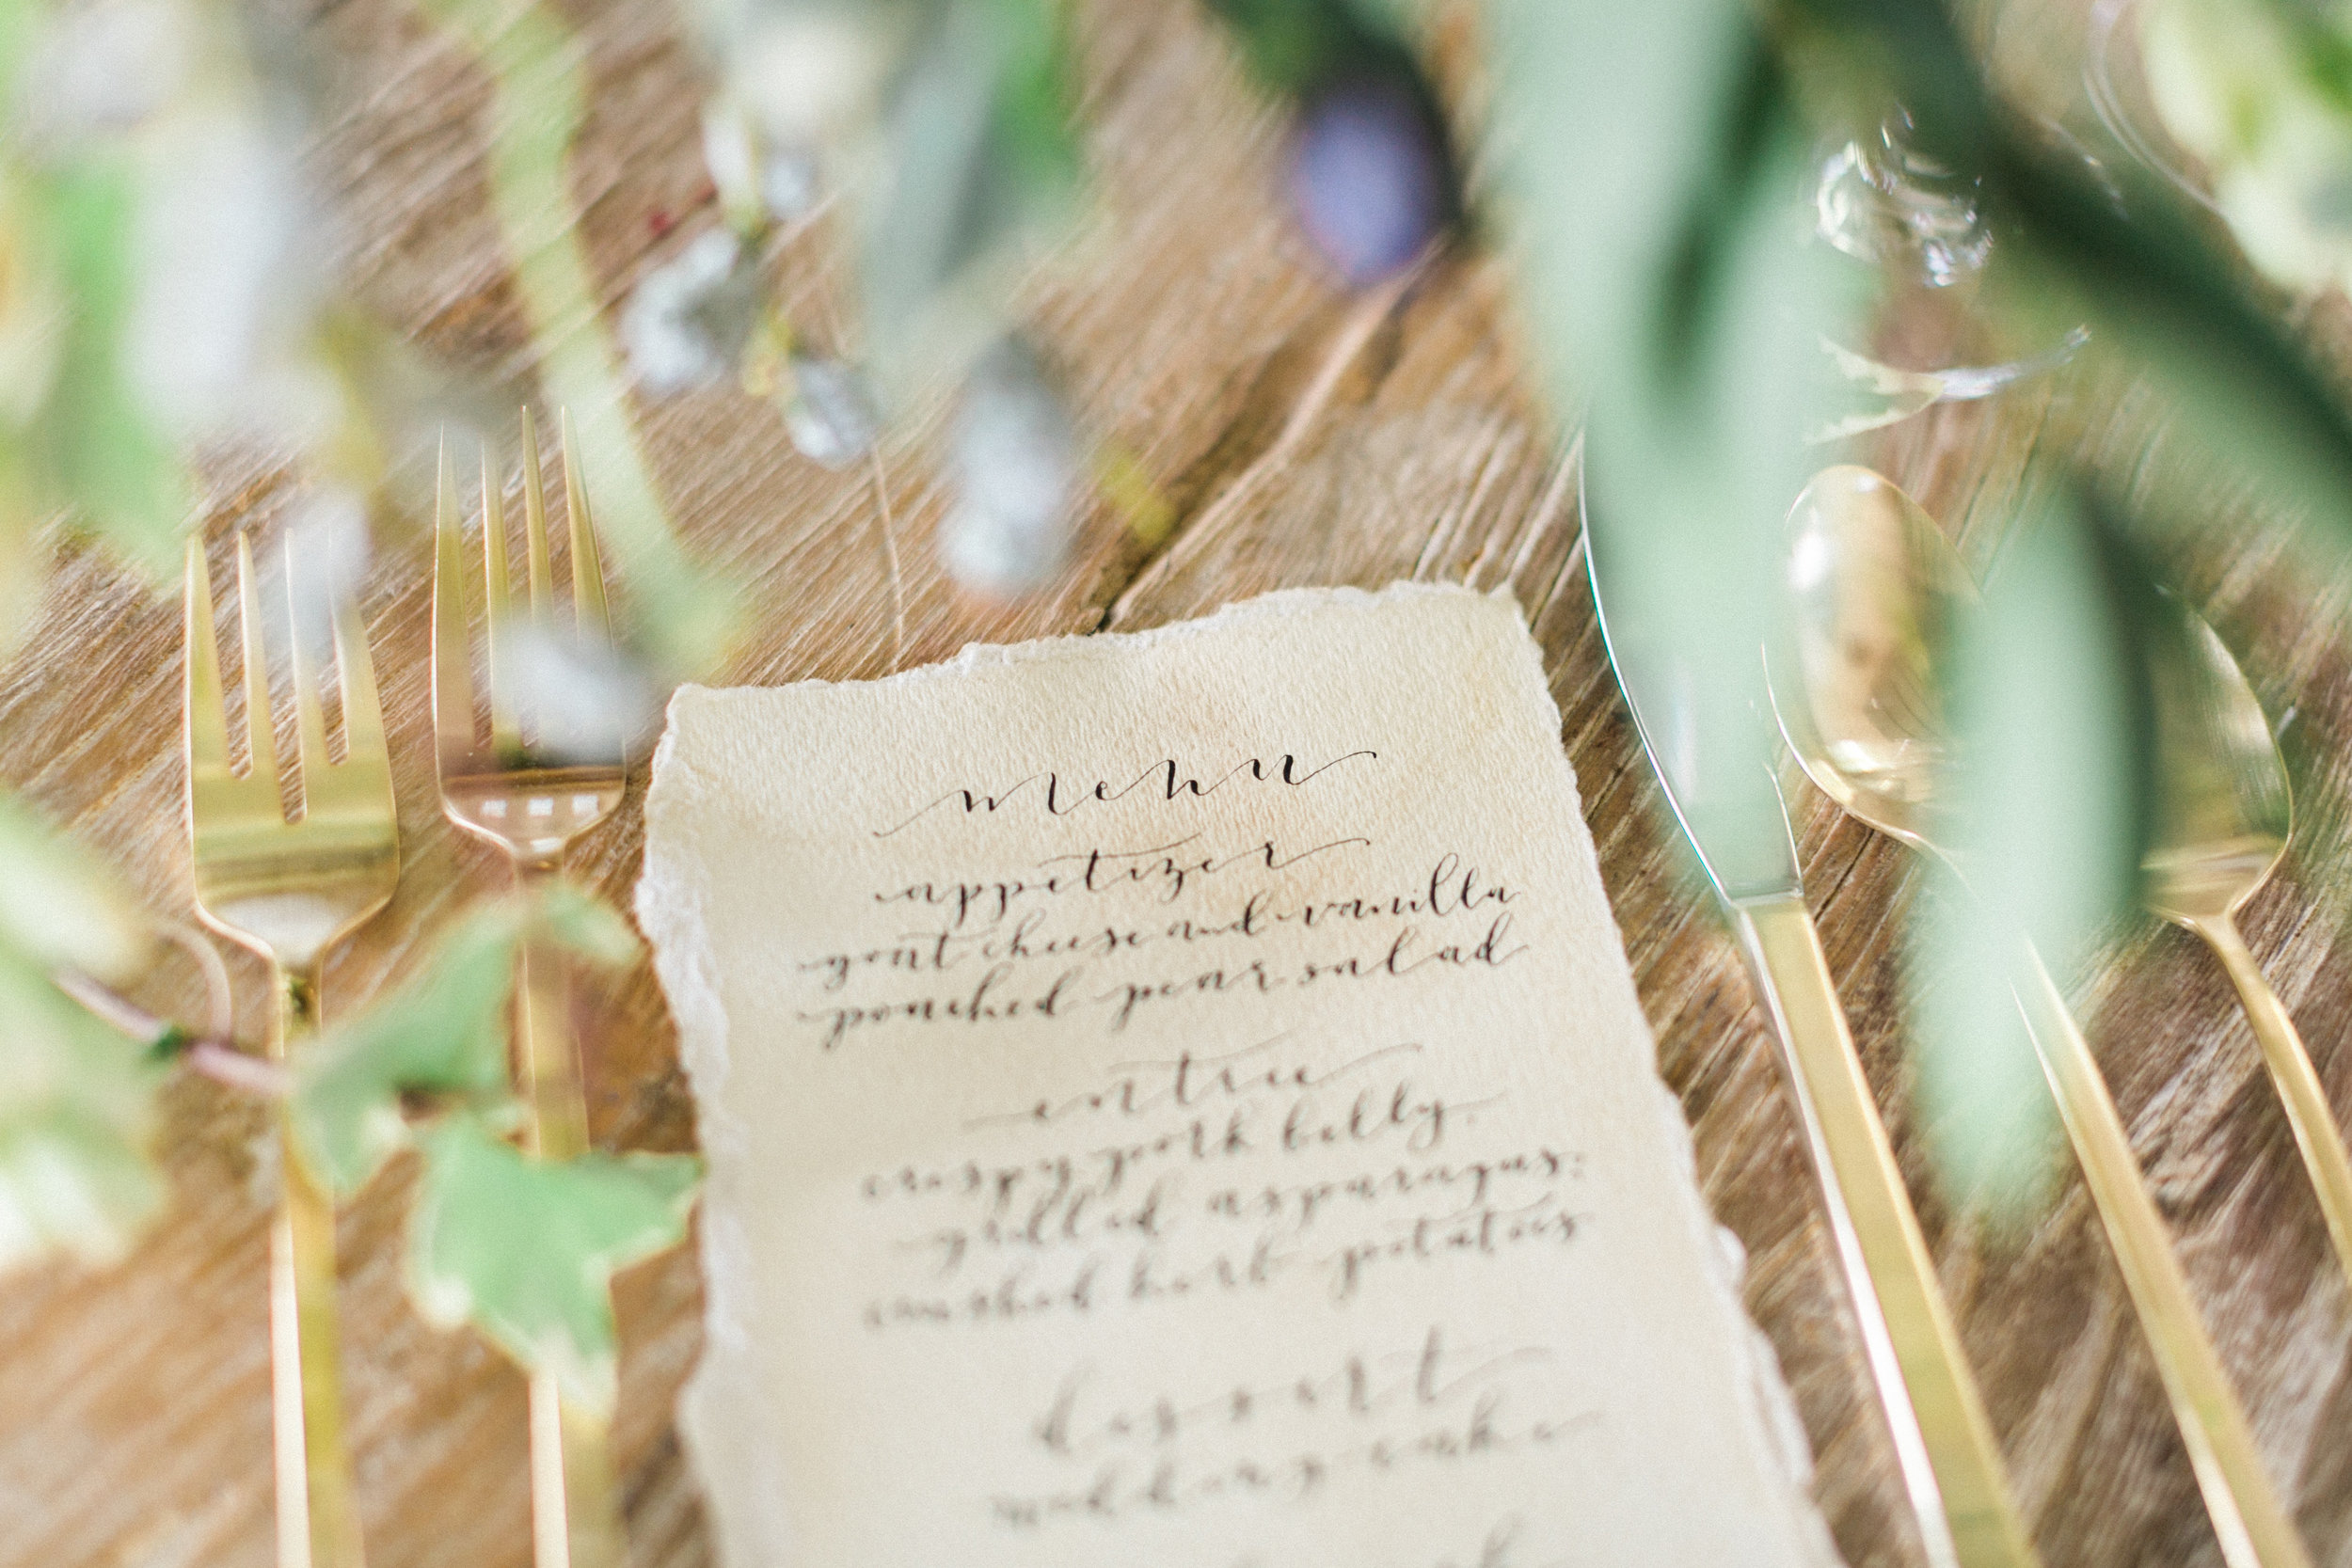 menu
appetizer
goat cheese and vanilla
poached pear salad
entree
crispy pork belly,
grilled asparagus,
crushed herb potatoes
dessert
wedding cake